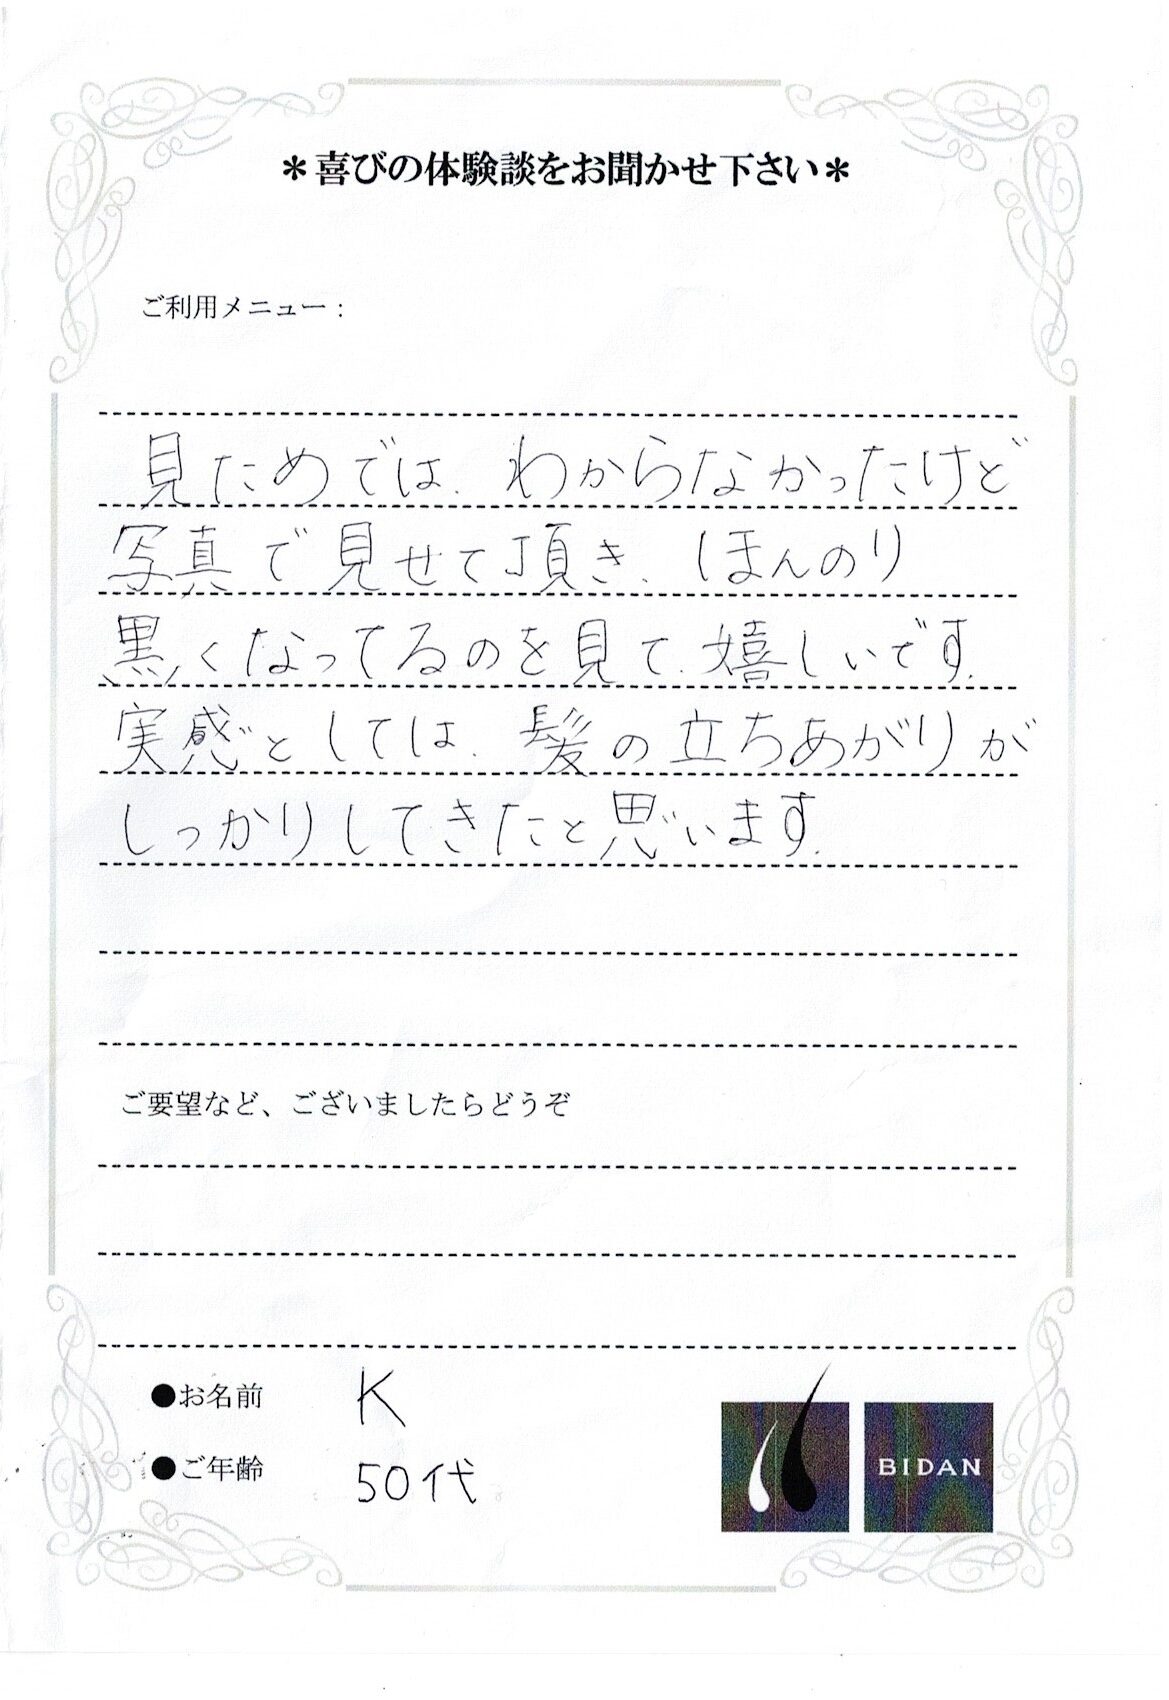 ＊喜びの体験談をお聞かせ下さい＊
ご利用メニュー：
見ためでは、わからなかったけど
写真で見せて頂き、ほんのり
黒くなってるのを見て、嬉しいです。
実感としては、髪の立ちあがりが
しっかりしてきたと思います。
ご要望など、ございましたらどうぞ
●お名前 K
●ご年齢 50代
BIDAN